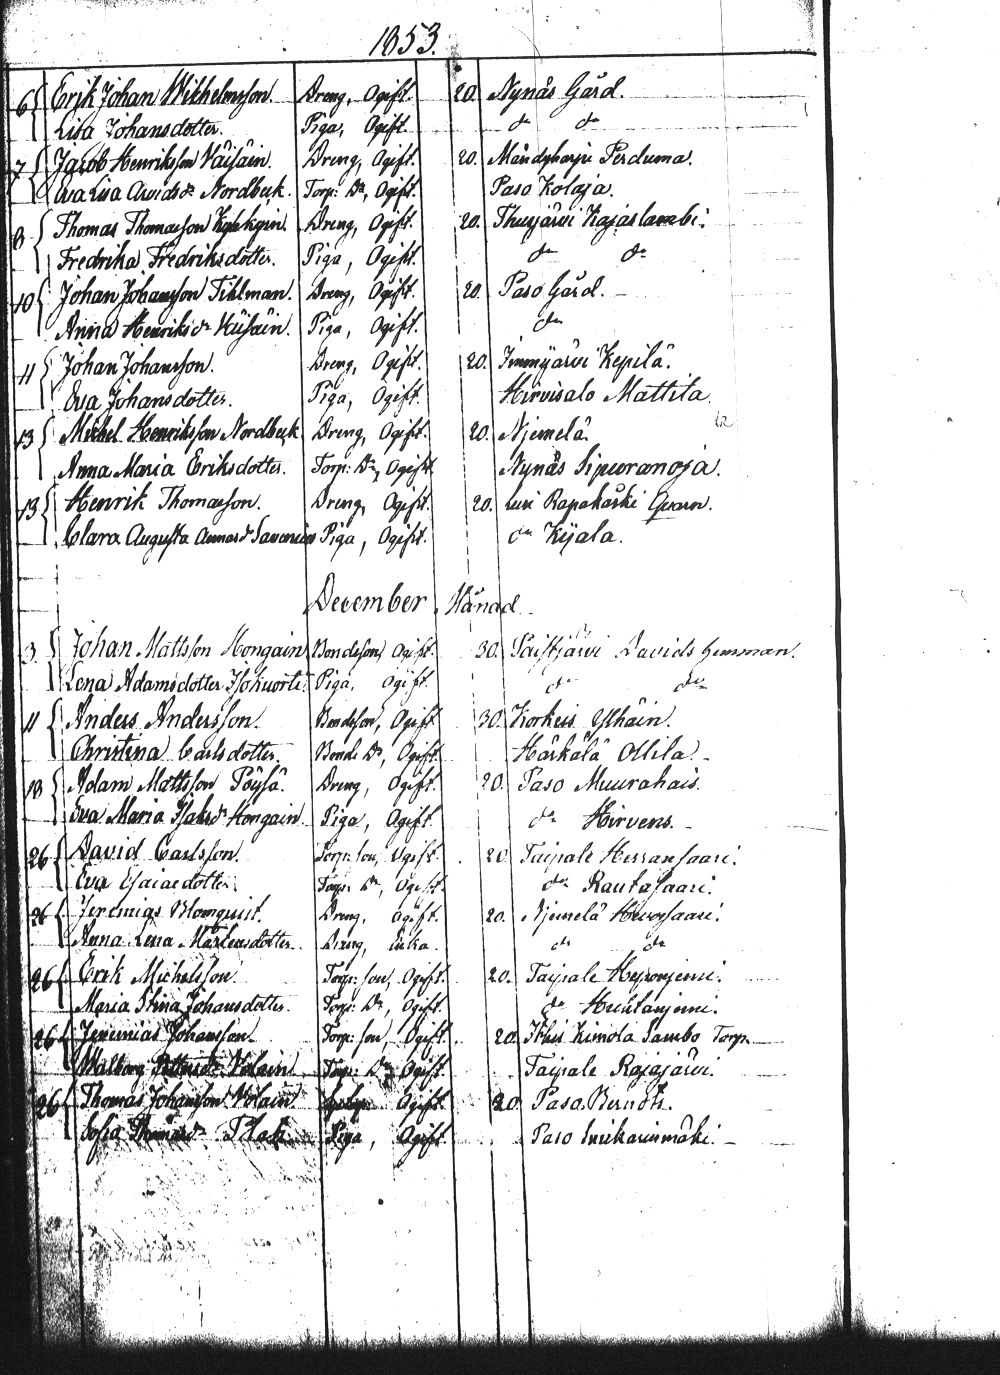 1853.
6 { Erik Johan Wilhelmsson. Dreng, Ogift. 20. Nynäs Gård.
Lisa Johansdotter. Piga, Ogift. do do
7 { Jacob Henriksson Väisäin. Dreng, Ogift. 20. Perduma.
Eva Lisa Arvidsdr Nordbeck. Torp: Dr, Ogift. Paso Kolaja.
8 { Thomas Thomasson Dreng, Ogift. 20.
Fredrika Fredriksdotter. Piga, Ogift. do do
10 { Johan Johansson Tihlman. Dreng, Ogift. 20. Paso Gård.
Anna Henriksdr Väisäin. Piga, Ogift. do
11 { Johan Johansson. Dreng, Ogift. 20. Immjärvi Kepilä.
Eva Johansdotter. Piga, Ogift. Hirvisalo Mattila.
13 { Michel Henriksson Nordbeck Dreng, Ogift. 20. Njemelä.
Anna Maria Eriksdotter. Torp: Dr, Ogift. Nynäs Sipuranoja.
13 { Henrik Thomasson. Dreng, Ogift. 20. Rapakoski Qvarn.
Clara Augusta Piga, Ogift. do Kijala.
December Månad.
3. { Johan Mattsson Hongain Bondeson, Ogift. 30. Davids Hemman.
Lena Adamsdotter Piga, Ogift. do do
11 { Anders Andersson. Bondeson, Ogift. 30. Korkeis Ylhäin.
Christina Carlsdotter. Bonde Dr, Ogift. Härkälä Ollila.
18 { Adam Mattsson Pöysä. Dreng, Ogift. 20. Paso Muurahais.
Eva Maria Isaksdr Hongain. Piga, Ogift. do Hirvens.
26 { David Carlsson. Torp: son, Ogift. 20 Taipale Hessansaari.
Eva Esaiaedotter. Torp: Dr, Ogift. do Rautasaari.
26 { Jeremias Blomquist. Dreng, Ogift. 20. Njemelä Hevossaari.
Anna Lena Mårtensdotter. Dreng, Enka. do do
26 { Erik Michelsson Torp: son, Ogift. 20. Taipale Heponjemi.
Maria Stina Johansdotter. Torp: Dr, Ogift. do
26 { Jeremias Johansson. Torp: son, Ogift. 20. Kimola Sambo Torp.
Walborg Volain Torp: Dr, Ogift. Taipale Rajajärvi.
26 { Thomas Johansson Volain Ogift. 20. Paso Berndts.
Sofia Thomasdr Piga, Ogift. Paso